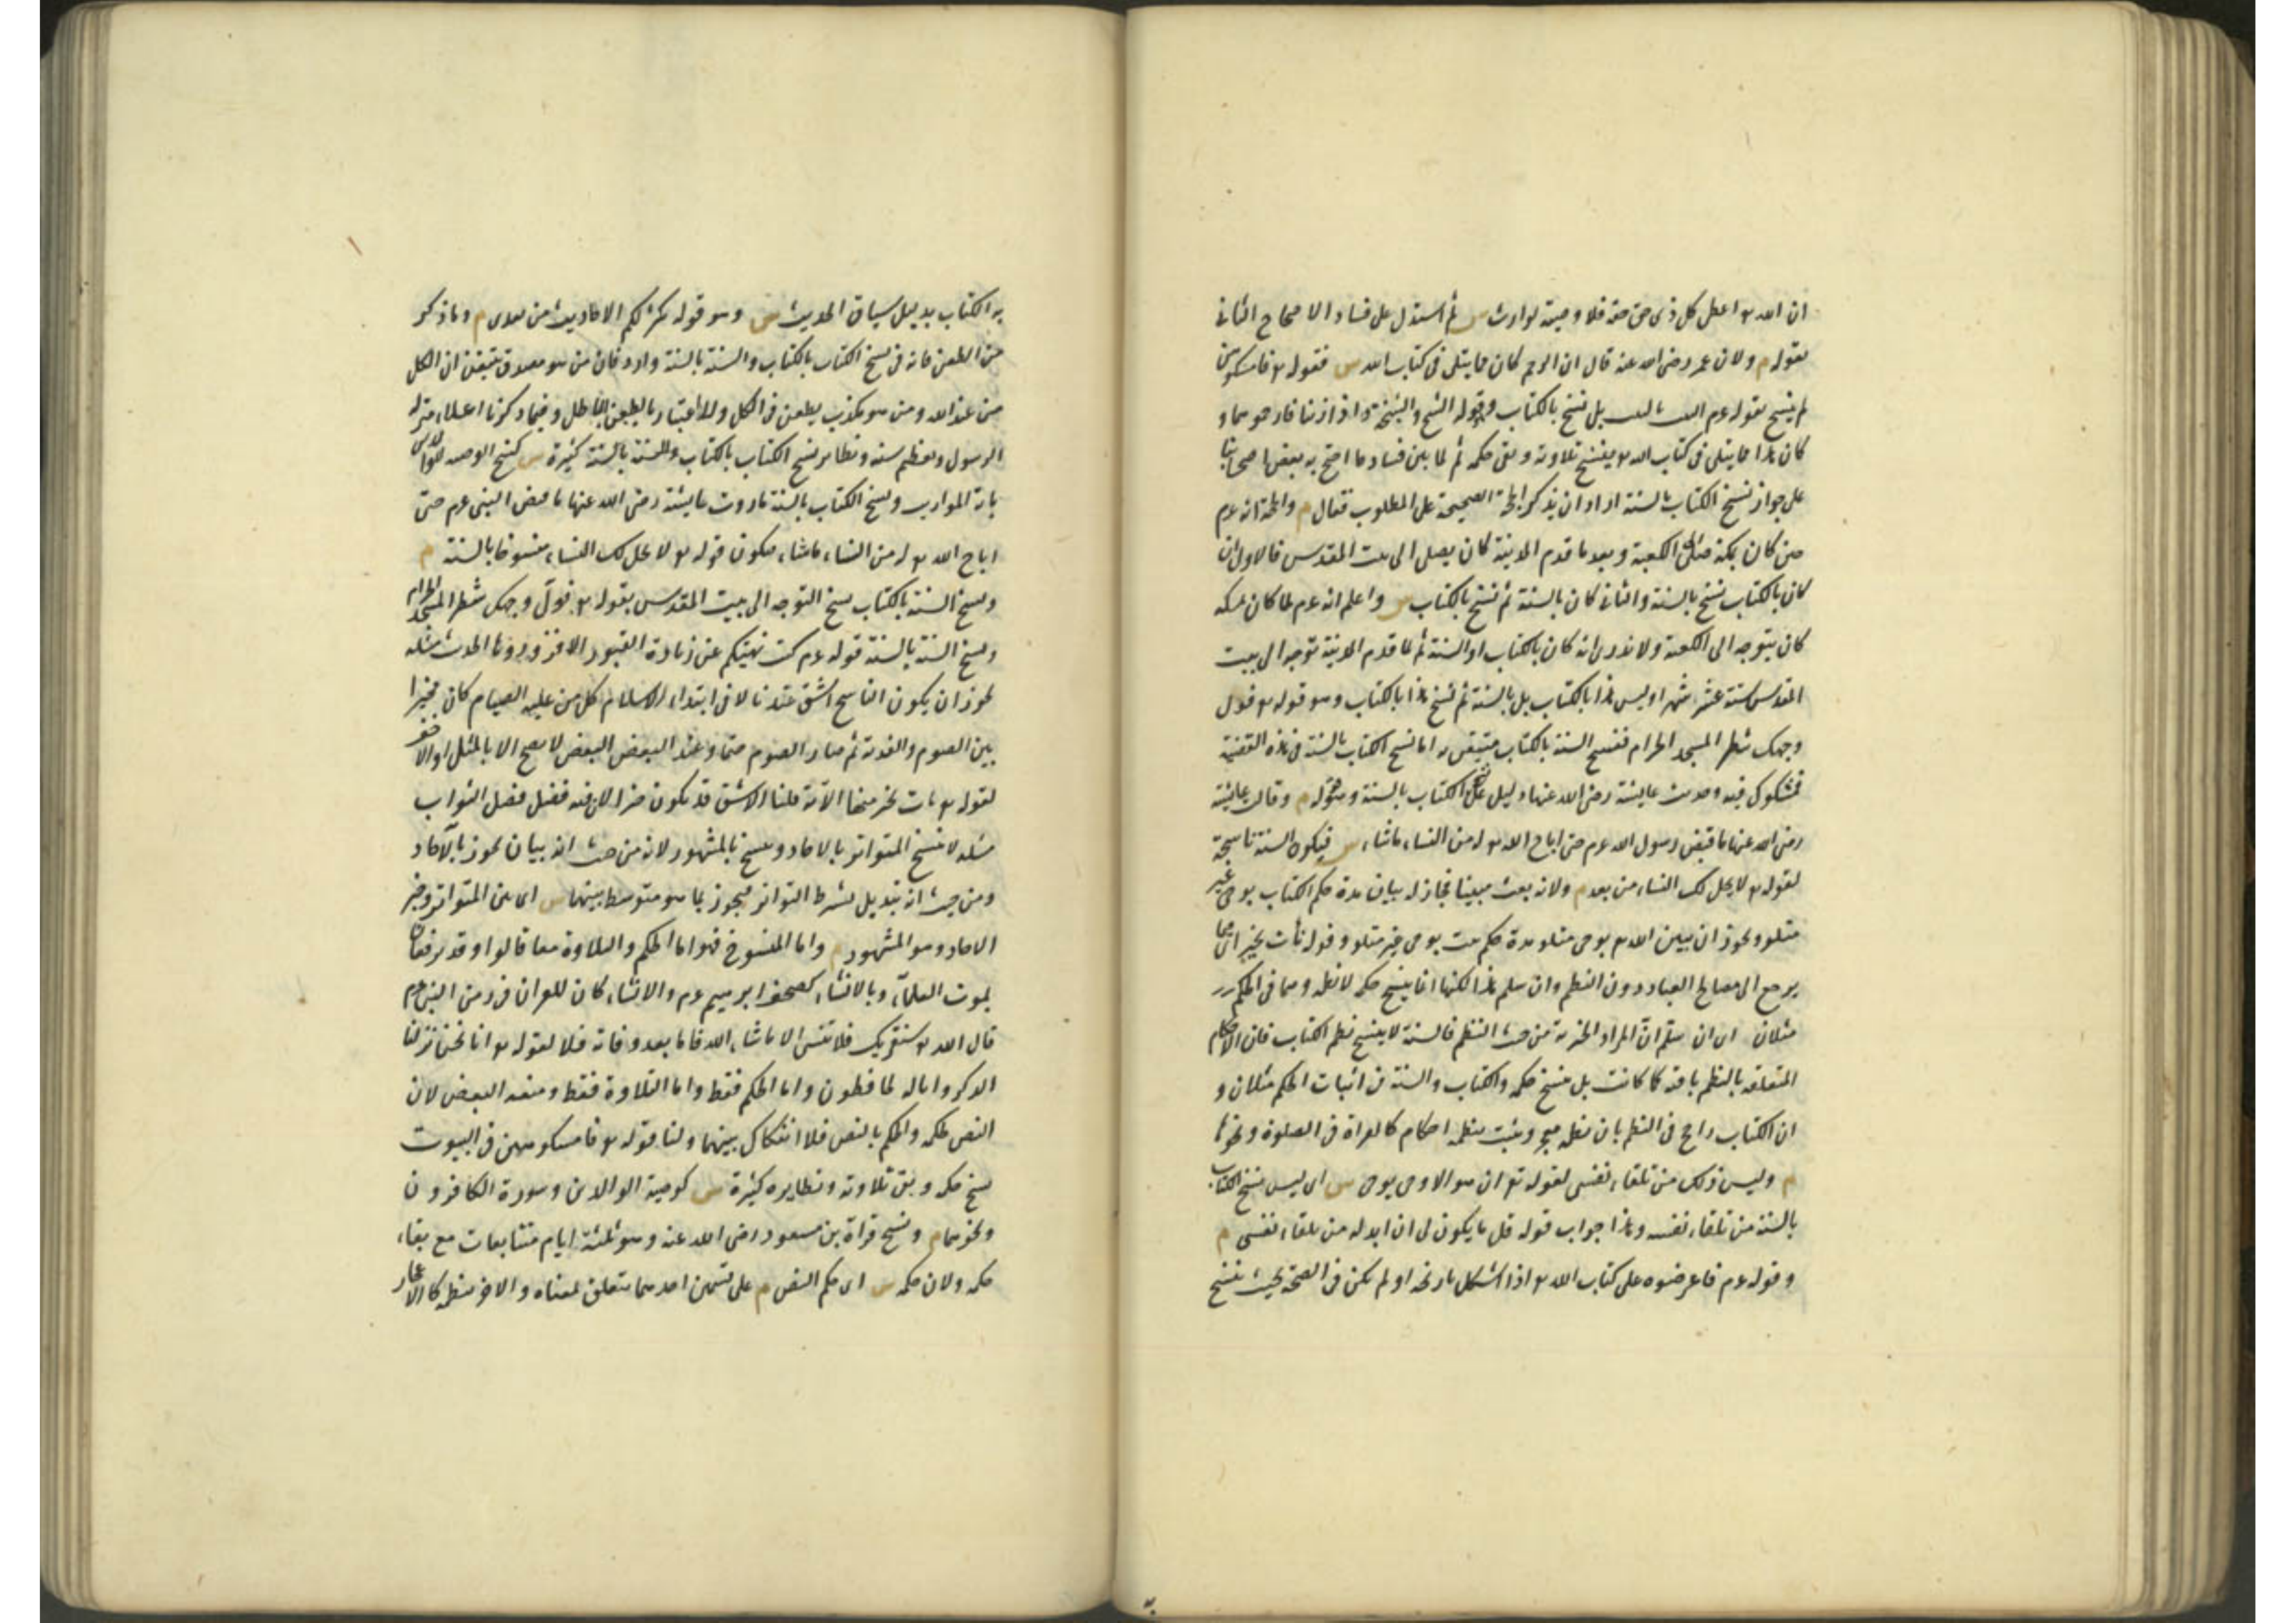 ان الله تع اعطى كل ذى حق حقه فلا وصية لوارث س ثم استدل على فساد الاحتجاج الثانى
بقوله م ولان عمر رضى الله عنه قال ان الرجم كان مما يتلى فى كتاب الله س فقوله تع فامسكوهن
لم ينسخ بقوله عم الثيب بالثيب بل نسخ بالكتاب وهو قوله الشيخ والشيخة اذا زنيا فارجموهما و
كان هذا مما يتلى فى كتاب الله تع فنسخ تلاوته وبقى حكمه ثم لما بين فساد ما احتج به بعض اصحابنا
على جواز نسخ الكتاب بالسنة اراد ان يذكر الحجة الصحيحة على المطلوب فقال م والحجة انه عم
حين كان بمكة يصلى الى الكعبة وبعد ما قدم المدينة كان يصلى الى بيت المقدس فالاول ان
كان بالكتاب نسخ بالسنة والثانى كان بالسنة ثم نسخ بالكتاب س واعلم انه عم لما كان بمكة
كان يتوجه الى الكعبة ولا ندرى انه كان بالكتاب او السنة ثم لما قدم المدينة توجه الى بيت
المقدس ستة عشر شهرا وليس هذا بالكتاب بل بالسنة ثم نسخ هذا بالكتاب وهو قوله تع فول
وجهك شطر المسجد الحرام فنسخ السنة بالكتاب متيقن به اما نسخ الكتاب بالسنة فى هذه القضية
فمشكوك فيه وحديث عايشة رضى الله عنها دليل على نسخ الكتاب بالسنة وهو قوله م وقالت عايشة
رضى الله عنها ما قبض رسول الله عم حتى اباح الله تع له من النساء ماشاء س فيكون السنة ناسخة
لقوله تع لا يحل لك النساء من بعد م ولانه بعث مبينا فجاز له بيان مدة حكم الكتاب بوحى غير
متلو ويجوز ان يبين الله تع بوحى متلو مدة حكم ثبت بوحى غير متلو وقوله نأت بخير اى فيما
يرجع الى مصالح العباد دون النظم وان سلم هذا لكنها انما ينسخ حكمه لا نظمه وهما فى الحكم
مثلان اى ان سلم ان المراد الخيرية من حيث النظم فالسنة لا ينسخ نظم الكتاب فان الاحكام
المتعلقة بالنظم باقية كما كانت بل ينسخ حكمه والكتاب والسنة فى اثبات الحكم مثلان و
ان الكتاب راجح فى النظم بان نظمه معجز ويثبت بنظمه احكام كالقراة فى الصلوة ونحوها
م وليس ذلك من تلقاء نفسى لقوله تع ان هو الا وحى يوحى س اى ليس نسخ الكتاب
بالسنة من تلقاء نفسه وهذا جواب قوله قل ما يكون لى ان ابدله من تلقاء نفسى م
وقوله عم فاعرضوه على كتاب الله تع اذا اشكل تاريخه او لم يكن فى الصحة بحيث ينسخ
به الكتاب بدليل سياق الحديث س وهو قوله يكثر لكم الاحاديث من بعدى م وما ذكر
من الطعن فانه فى نسخ الكتاب بالكتاب والسنة بالسنة وارد فان من هو مصدق يتيقن ان الكل
من عند الله ومن هو مكذب يطعن فى الكل ولا اعتبار بالطعن الباطل وفيما ذكرنا اعلاء منزلة
الرسول وتعظيم سنته ونظاير نسخ الكتاب بالكتاب والسنة بالسنة كثيرة س كنسخ الوصية للوالدين
باية المواريث ونسخ الكتاب بالسنة ما روت عايشة رضى الله عنها ما قبض النبى عم حتى
اباح الله تع له من النساء ماشاء فيكون قوله تع لا يحل لك النساء منسوخا بالسنة م
ونسخ السنة بالكتاب نسخ التوجه الى بيت المقدس بقوله تع فول وجهك شطر المسجد الحرام
ونسخ السنة بالسنة قوله عم كنت نهيتكم عن زيارة القبور الا فزوروها الحديث مسئله
يجوز ان يكون الناسخ اشق عندنا لان فى ابتداء الاسلام كل من عليه الصيام كان مخيرا
بين الصوم والفدية ثم صار الصوم حتما وعند البعض لا يصح الا بالمثل او الاخف
لقوله تع نات بخير منها الآية قلنا الاشق قد يكون خيرا لان فيه فضل الثواب
مسئله لا ينسخ المتواتر بالاحاد وينسخ بالمشهور لانه من حيث انه بيان يجوز بالآحاد
ومن حيث انه تبديل يشترط التواتر فيجوز بما هو متوسط بينهما س اى بين المتواتر وخبر
الاحاد وهو المشهور م واما المنسوخ فهو اما الحكم والتلاوة معا قالوا وقد يرفعان
بموت العلماء وبالانساء كصحف ابرهيم عم والانساء كان للقران فى زمن النبى عم
قال الله تع سنقرئك فلا تنسى الا ماشاء الله فاما بعد وفاته فلا لقوله تع انا نحن نزلنا
الذكر وانا له لحافظون واما الحكم فقط واما التلاوة فقط ومنعه البعض لان
النص لحكمه والحكم بالنص فلا انفكاك بينهما ولنا قوله تع فامسكوهن فى البيوت
نسخ حكمه وبقى تلاوته ونظايره كثيرة س كوصية الوالدين وسورة الكافرون
ونحوهما م ونسخ قراة بن مسعود رضى الله عنه وهو ثلثة ايام متتابعات مع بقاء
حكمه ولان حكمه س اى حكم النص م على قسمين احدهما يتعلق بمعناه والاخر بنظمه كالاعجاز